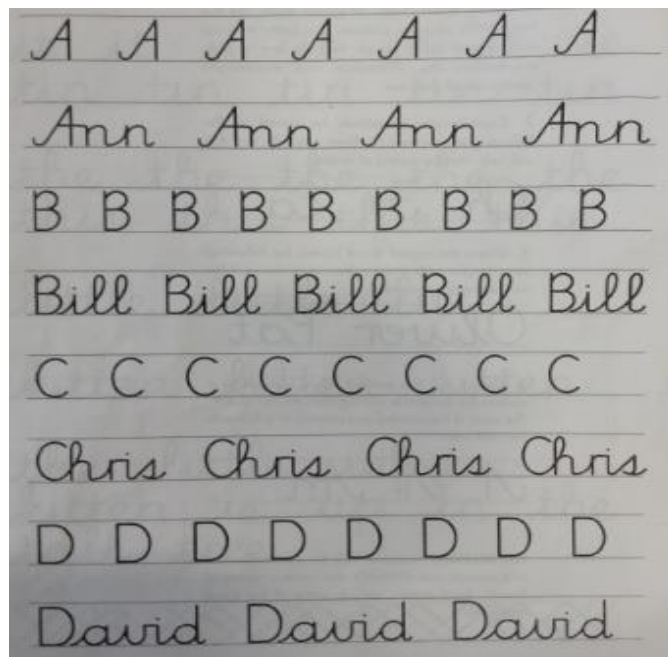 A A A A A A A
Ann Ann Ann Ann
B B B B B B B B B
Bill Bill Bill Bill Bill
C C C C C C C C
Chris Chris Chris Chris
D D D D D D D D
David David David